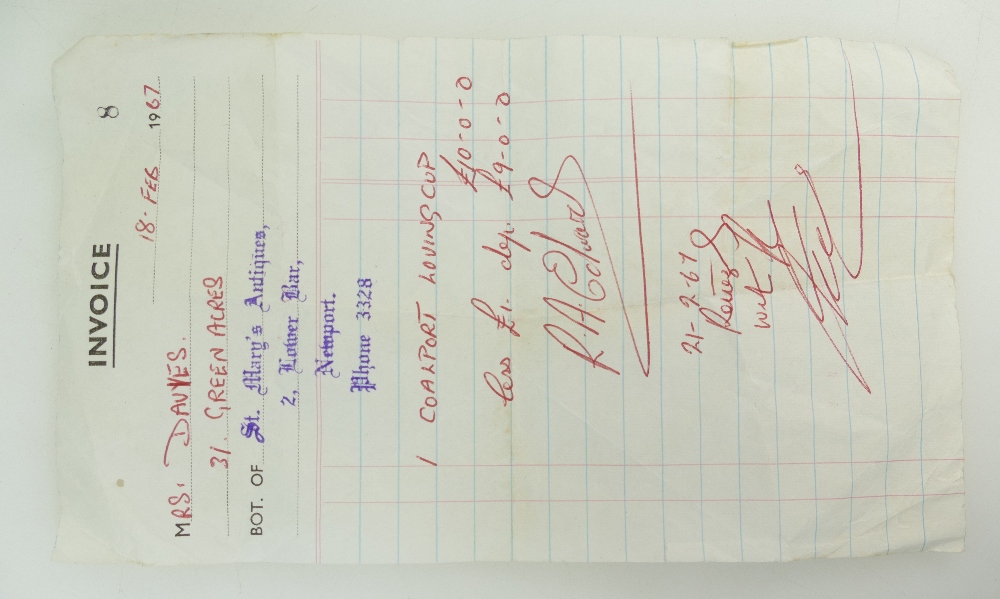 INVOICE
8
18 - FEB 1967
MRS. DAVIES.
31. GREEN ACRES
BOT. OF St. Mary's Antiques,
2, Lower Bar,
Newport.
Phone 3328
1 COALPORT LOVING CUP
£10-0-0
less £1. dep. £9-0-0
R.A. Edwards
21-2-67